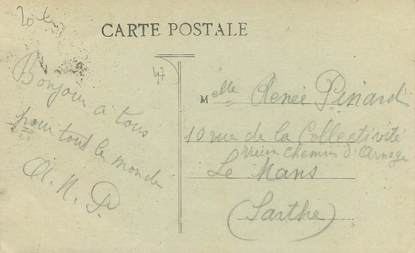 CARTE POSTALE
47
Bonjour à tous
pour tout le monde
A. N. P.
Melle Renée Pinard
10 rue de la Collectivité
Vieux Chemin d'Arnage
Le Mans
(Sarthe)